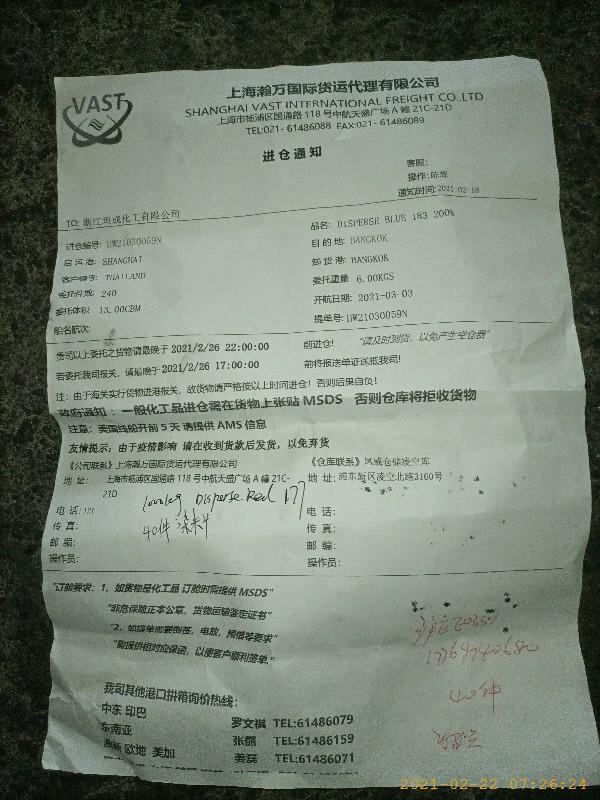 VAST
上海瀚万国际货运代理有限公司
SHANGHAI VAST INTERNATIONAL FREIGHT CO.,LTD
上海市杨浦区国通路 118 号中航天盛广场 A 幢 21C-21D
TEL:021- 61486088 FAX:021- 61486089
进仓通知
客服:
操作:陈辉
通知时间:2021-02-18
TO: 浙江迪成化工有限公司
进仓编号: HW21030059N
品名: DISPERSE BLUE 183 200%
启运港: SHANGHAI
目的地: BANGKOK
客户编号: THAILAND
卸货港: BANGKOK
委托件数: 240
委托重量: 6.00KGS
委托体积: 13.00CBM
开航日期: 2021-03-03
船名航次:
提单号: HW21030059N
贵司以上委托之货物请最晚于 2021/2/26 22:00:00 前进仓! "请及时到货,以免产生空仓费"
若委托我司报关,请最晚于 2021/2/26 17:00:00 前将报送单证送抵我司!
注:由于海关实行货物进港报关,故货物请严格按以上时间进仓!否则后果自负!
政府通知:一般化工品进仓需在货物上张贴 MSDS 否则仓库将拒收货物
注意:美国线船开前 5 天 请提供 AMS 信息
友情提示:由于疫情影响 请在收到货款后发货,以免弃货
《公司联系》上海瀚万国际货运代理有限公司
《仓库联系》凤威仓储凌空库
地 址: 上海市杨浦区国通路 118 号中航天盛广场 A 幢 21C-21D
地 址: 浦东新区凌空北路3160号
1000kg Disperse Red 177
40件
电 话:
电 话:
传 真:
传 真:
邮 编:
邮 编:
操作员:
操作员:
"订舱要求:1,如货物是化工品 订舱时需提供 MSDS"
"非危保险正本公章,货物运输鉴定证书"
"2,如提单需要倒签,电放,预借等要求"
"需提供相对应保函,以便客户顺利签单"
我司其他港口拼箱询价热线:
中东 印巴 罗文祺 TEL:61486079
东南亚 张磊 TEL:61486159
澳新 欧地 美加 姜磊 TEL:61486071
2021-02-22 07:26:24